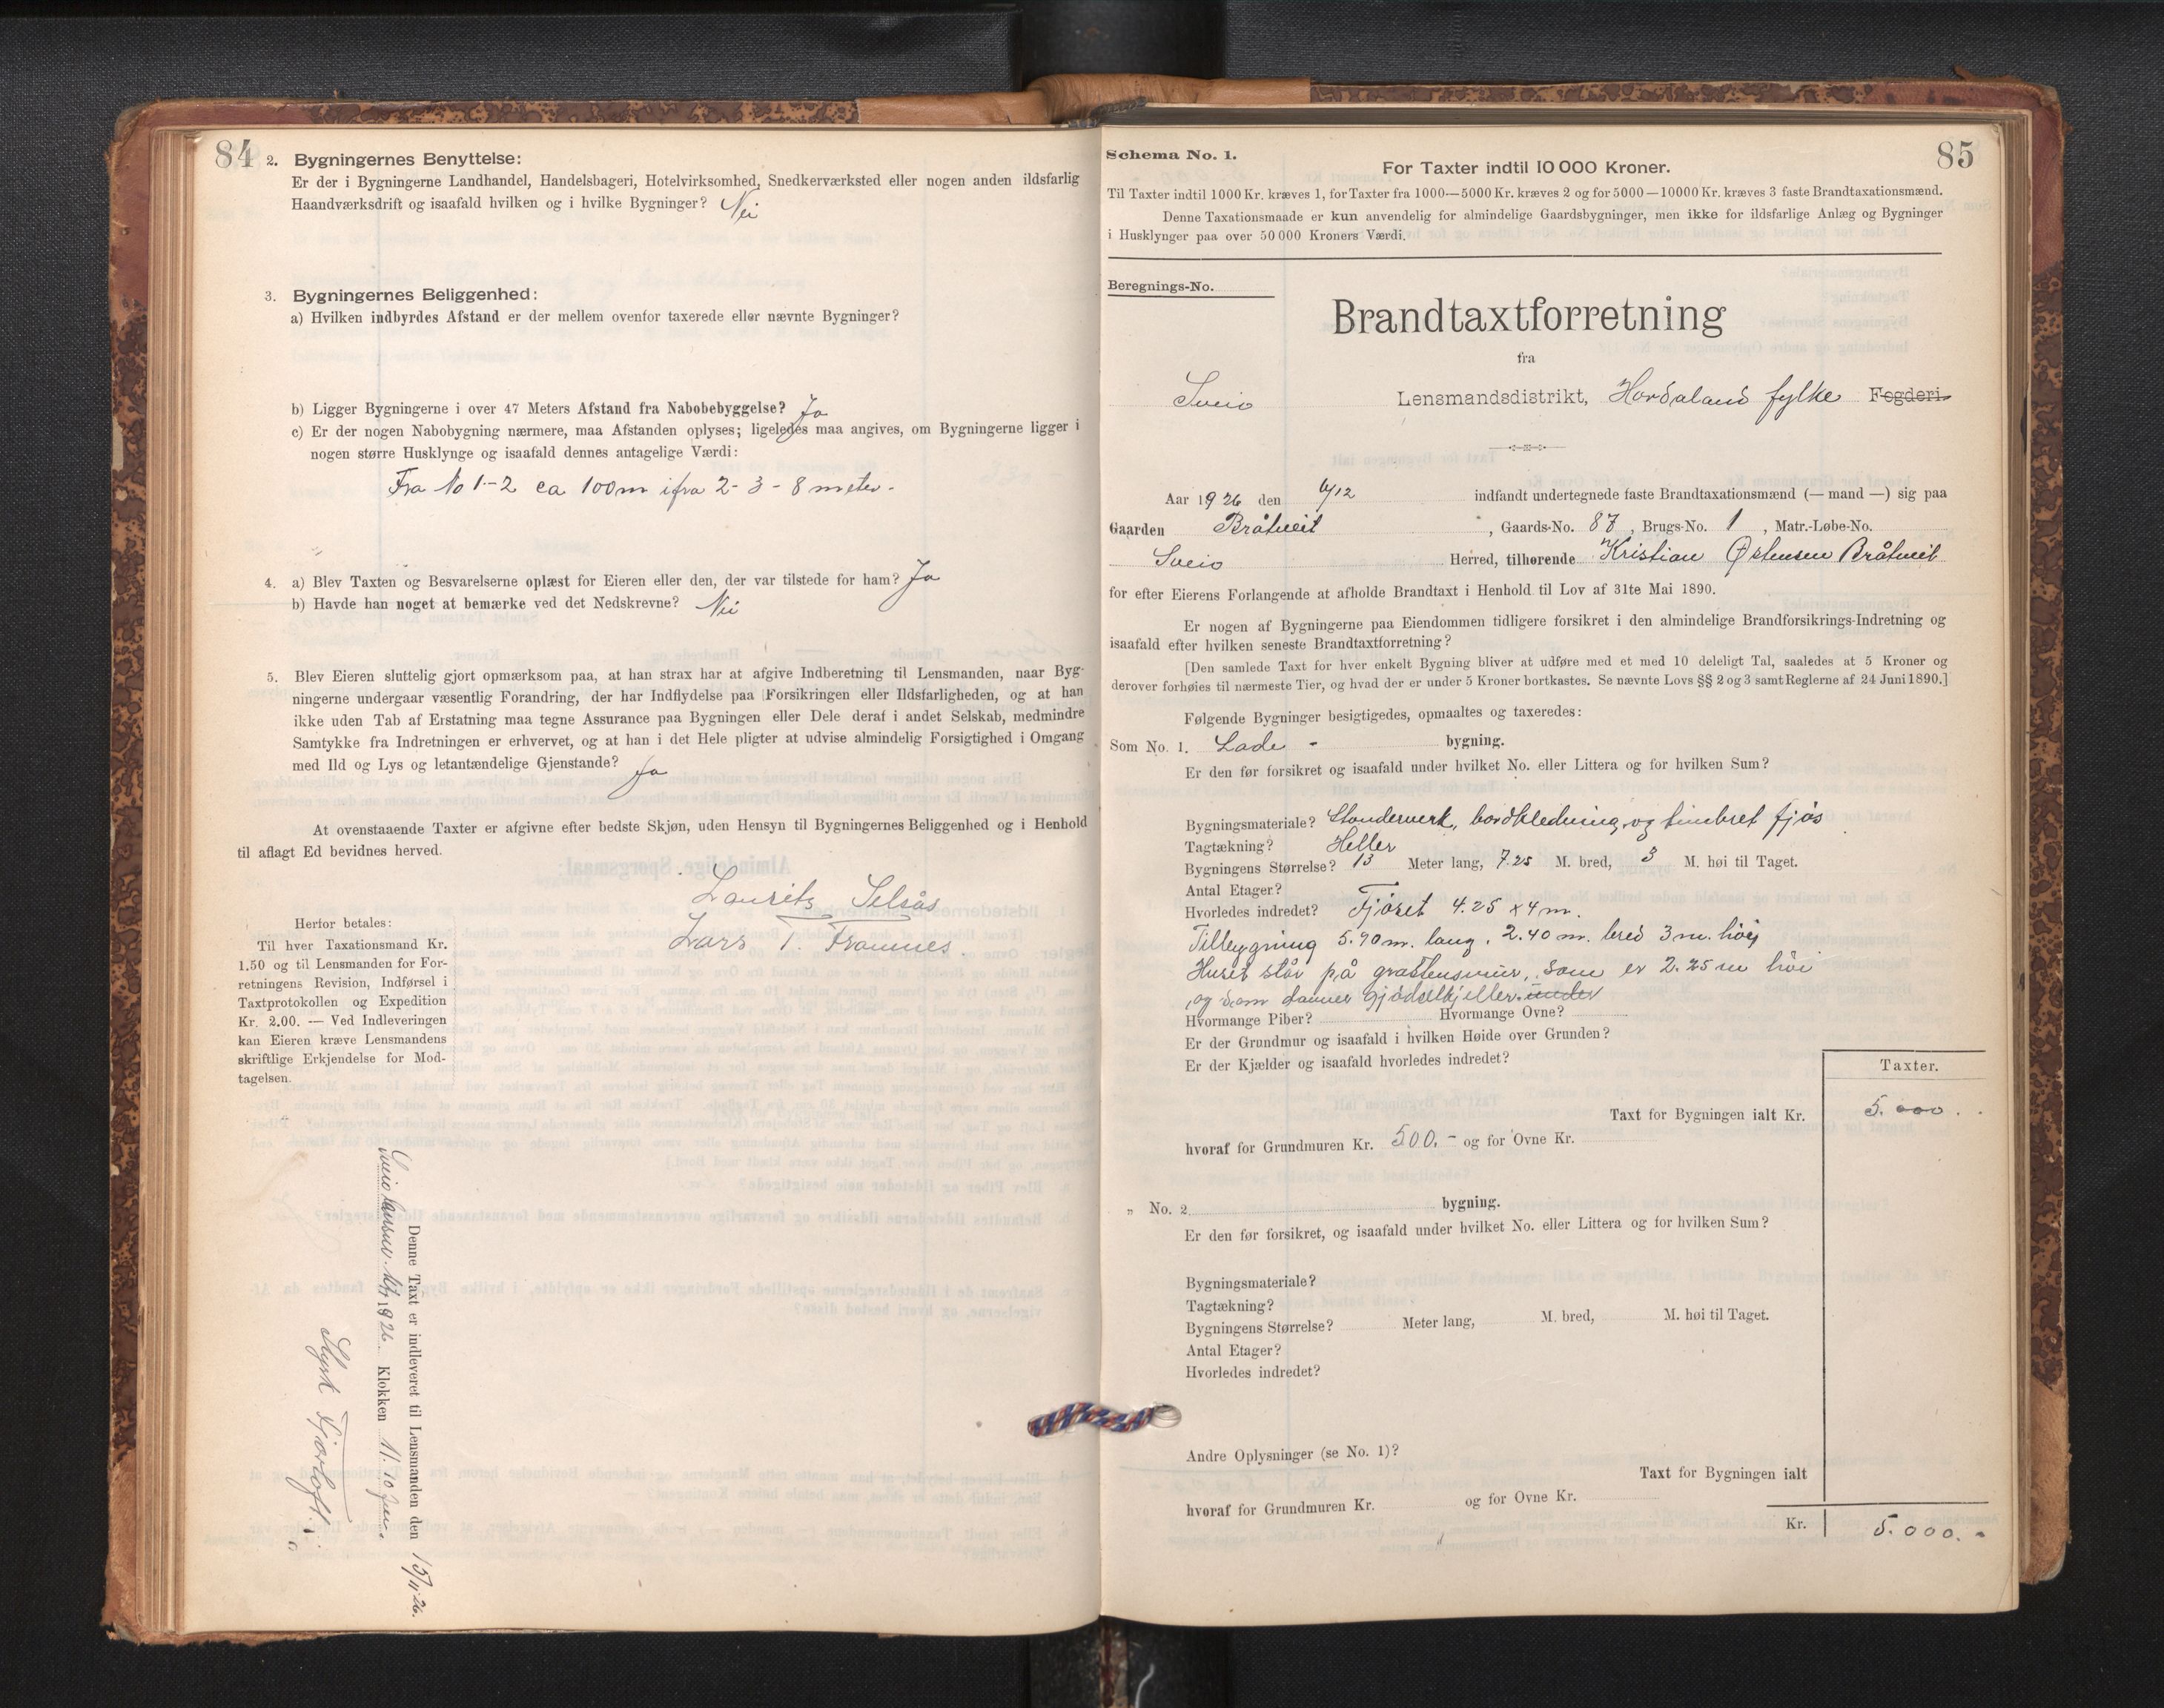 84
2. Bygningernes Benyttelse:
Er der i Bygningerne Landhandel, Handelsbageri, Hotelvirksomhed, Snedkerværksted eller nogen anden ildsfarlig
Haandværksdrift og isaafald hvilken og i hvilke Bygninger? Nei
3. Bygningernes Beliggenhed:
a) Hvilken indbyrdes Afstand er der mellem ovenfor taxerede eller nævnte Bygninger?
b) Ligger Bygningerne i over 47 Meters Afstand fra Nabobebyggelse? Ja
c) Er der nogen Nabobygning nærmere, maa Afstanden oplyses; ligeledes maa angives, om Bygningerne ligger i
nogen større Husklynge og isaafald dennes antagelige Værdi:
Fra No 1-2 ca 100m ifra 2-3-8 meter.
4. a) Blev Taxten og Besvarelserne oplæst for Eieren eller den, der var tilstede for ham? Ja
b) Havde han noget at bemærke ved det Nedskrevne? Nei
5. Blev Eieren sluttelig gjort opmærksom paa, at han strax har at afgive Indberetning til Lensmanden, naar Byg-
ningerne undergaar væsentlig Forandring, der har Indflydelse paa Forsikringen eller Ildsfarligheden, og at han
ikke uden Tab af Erstatning maa tegne Assurance paa Bygningen eller Dele deraf i andet Selskab, medmindre
Samtykke fra Indretningen er erhvervet, og at han i det Hele pligter at udvise almindelig Forsigtighed i Omgang
med Ild og Lys og letantændelige Gjenstande? Ja
At ovenstaaende Taxter er afgivne efter bedste Skjøn, uden Hensyn til Bygningernes Beliggenhed og i Henhold
til aflagt Ed bevidnes herved.
Laurits Selsås
Lars T. Framnes.
Herfor betales:
Til hver Taxationsmand Kr.
1.50 og til Lensmanden for For-
retningens Revision, Indførsel i
Taxtprotokollen og Expedition
Kr. 2.00. — Ved Indleveringen
kan Eieren kræve Lensmandens
skriftlige Erkjendelse for Mod-
tagelsen.
Denne Taxt er indleveret til Lensmanden den 15/11 26.
Sveio 1926 Klokken 11.10
85
Schema No. 1.
For Taxter indtil 10 000 Kroner.
Til Taxter indtil 1000 Kr. kræves 1, for Taxter fra 1000—5000 Kr. kræves 2 og for 5000—10000 Kr. kræves 3 faste Brandtaxationsmænd.
Denne Taxationsmaade er kun anvendelig for almindelige Gaardsbygninger, men ikke for ildsfarlige Anlæg og Bygninger
i Husklynger paa over 50 000 Kroners Værdi.
Beregnings-No.
Brandtaxtforretning
fra
Sveio Lensmandsdistrikt, Hordaland fylke Fogderi
Aar 1926 den 6/12 indfandt undertegnede faste Brandtaxationsmænd (— mand —) sig paa
Gaarden Bråtveit, Gaards-No. 87, Brugs-No. 1, Matr.-Løbe-No.
Sveio Herred, tilhørende Kristian Østensen Bråtveit
for efter Eierens Forlangende at afholde Brandtaxt i Henhold til Lov af 31te Mai 1890.
Er nogen af Bygningerne paa Eiendommen tidligere forsikret i den almindelige Brandforsikrings-Indretning og
isaafald efter hvilken seneste Brandtaxtforretning?
[Den samlede Taxt for hver enkelt Bygning bliver at udføre med et med 10 deleligt Tal, saaledes at 5 Kroner og
derover forhøies til nærmeste Tier, og hvad der er under 5 Kroner bortkastes. Se nævnte Lovs §§ 2 og 3 samt Reglerne af 24 Juni 1890.]
Følgende Bygninger besigtigedes, opmaaltes og taxeredes:
Som No. 1. Lade - bygning.
Er den før forsikret og isaafald under hvilket No. eller Littera og for hvilken Sum?
Bygningsmateriale? Standerverk, bordkledning, og timbret fjøs
Tagtækning? Heller
Bygningens Størrelse? 13 Meter lang, 7.25 M. bred, 3 M. høi til Taget.
Antal Etager?
Hvorledes indredet? Fjøset 4.25 x 4 m.
Tilbygning 5.90 m. lang, 2.40 m. bred 3 m. høi
Huset står på gråstensmur, som er 2.25 m høi
og som danner gjødselkjeller. under
Hvormange Piber? Hvormange Ovne?
Er der Grundmur og isaafald i hvilken Høide over Grunden?
Er der Kjælder og isaafald hvorledes indredet?
Taxter.
Taxt for Bygningen ialt Kr. 5.000.
hvoraf for Grundmuren Kr. 500.- og for Ovne Kr.
„ No. 2 bygning.
Er den før forsikret, og isaafald under hvilket No. eller Littera og for hvilken Sum?
Bygningsmateriale?
Tagtækning?
Bygningens Størrelse? Meter lang, M. bred, M. høi til Taget.
Antal Etager?
Hvorledes indredet?
Andre Oplysninger (se No. 1)?
Taxt for Bygningen ialt
hvoraf for Grundmuren Kr. og for Ovne Kr.
Kr. 5.000.-